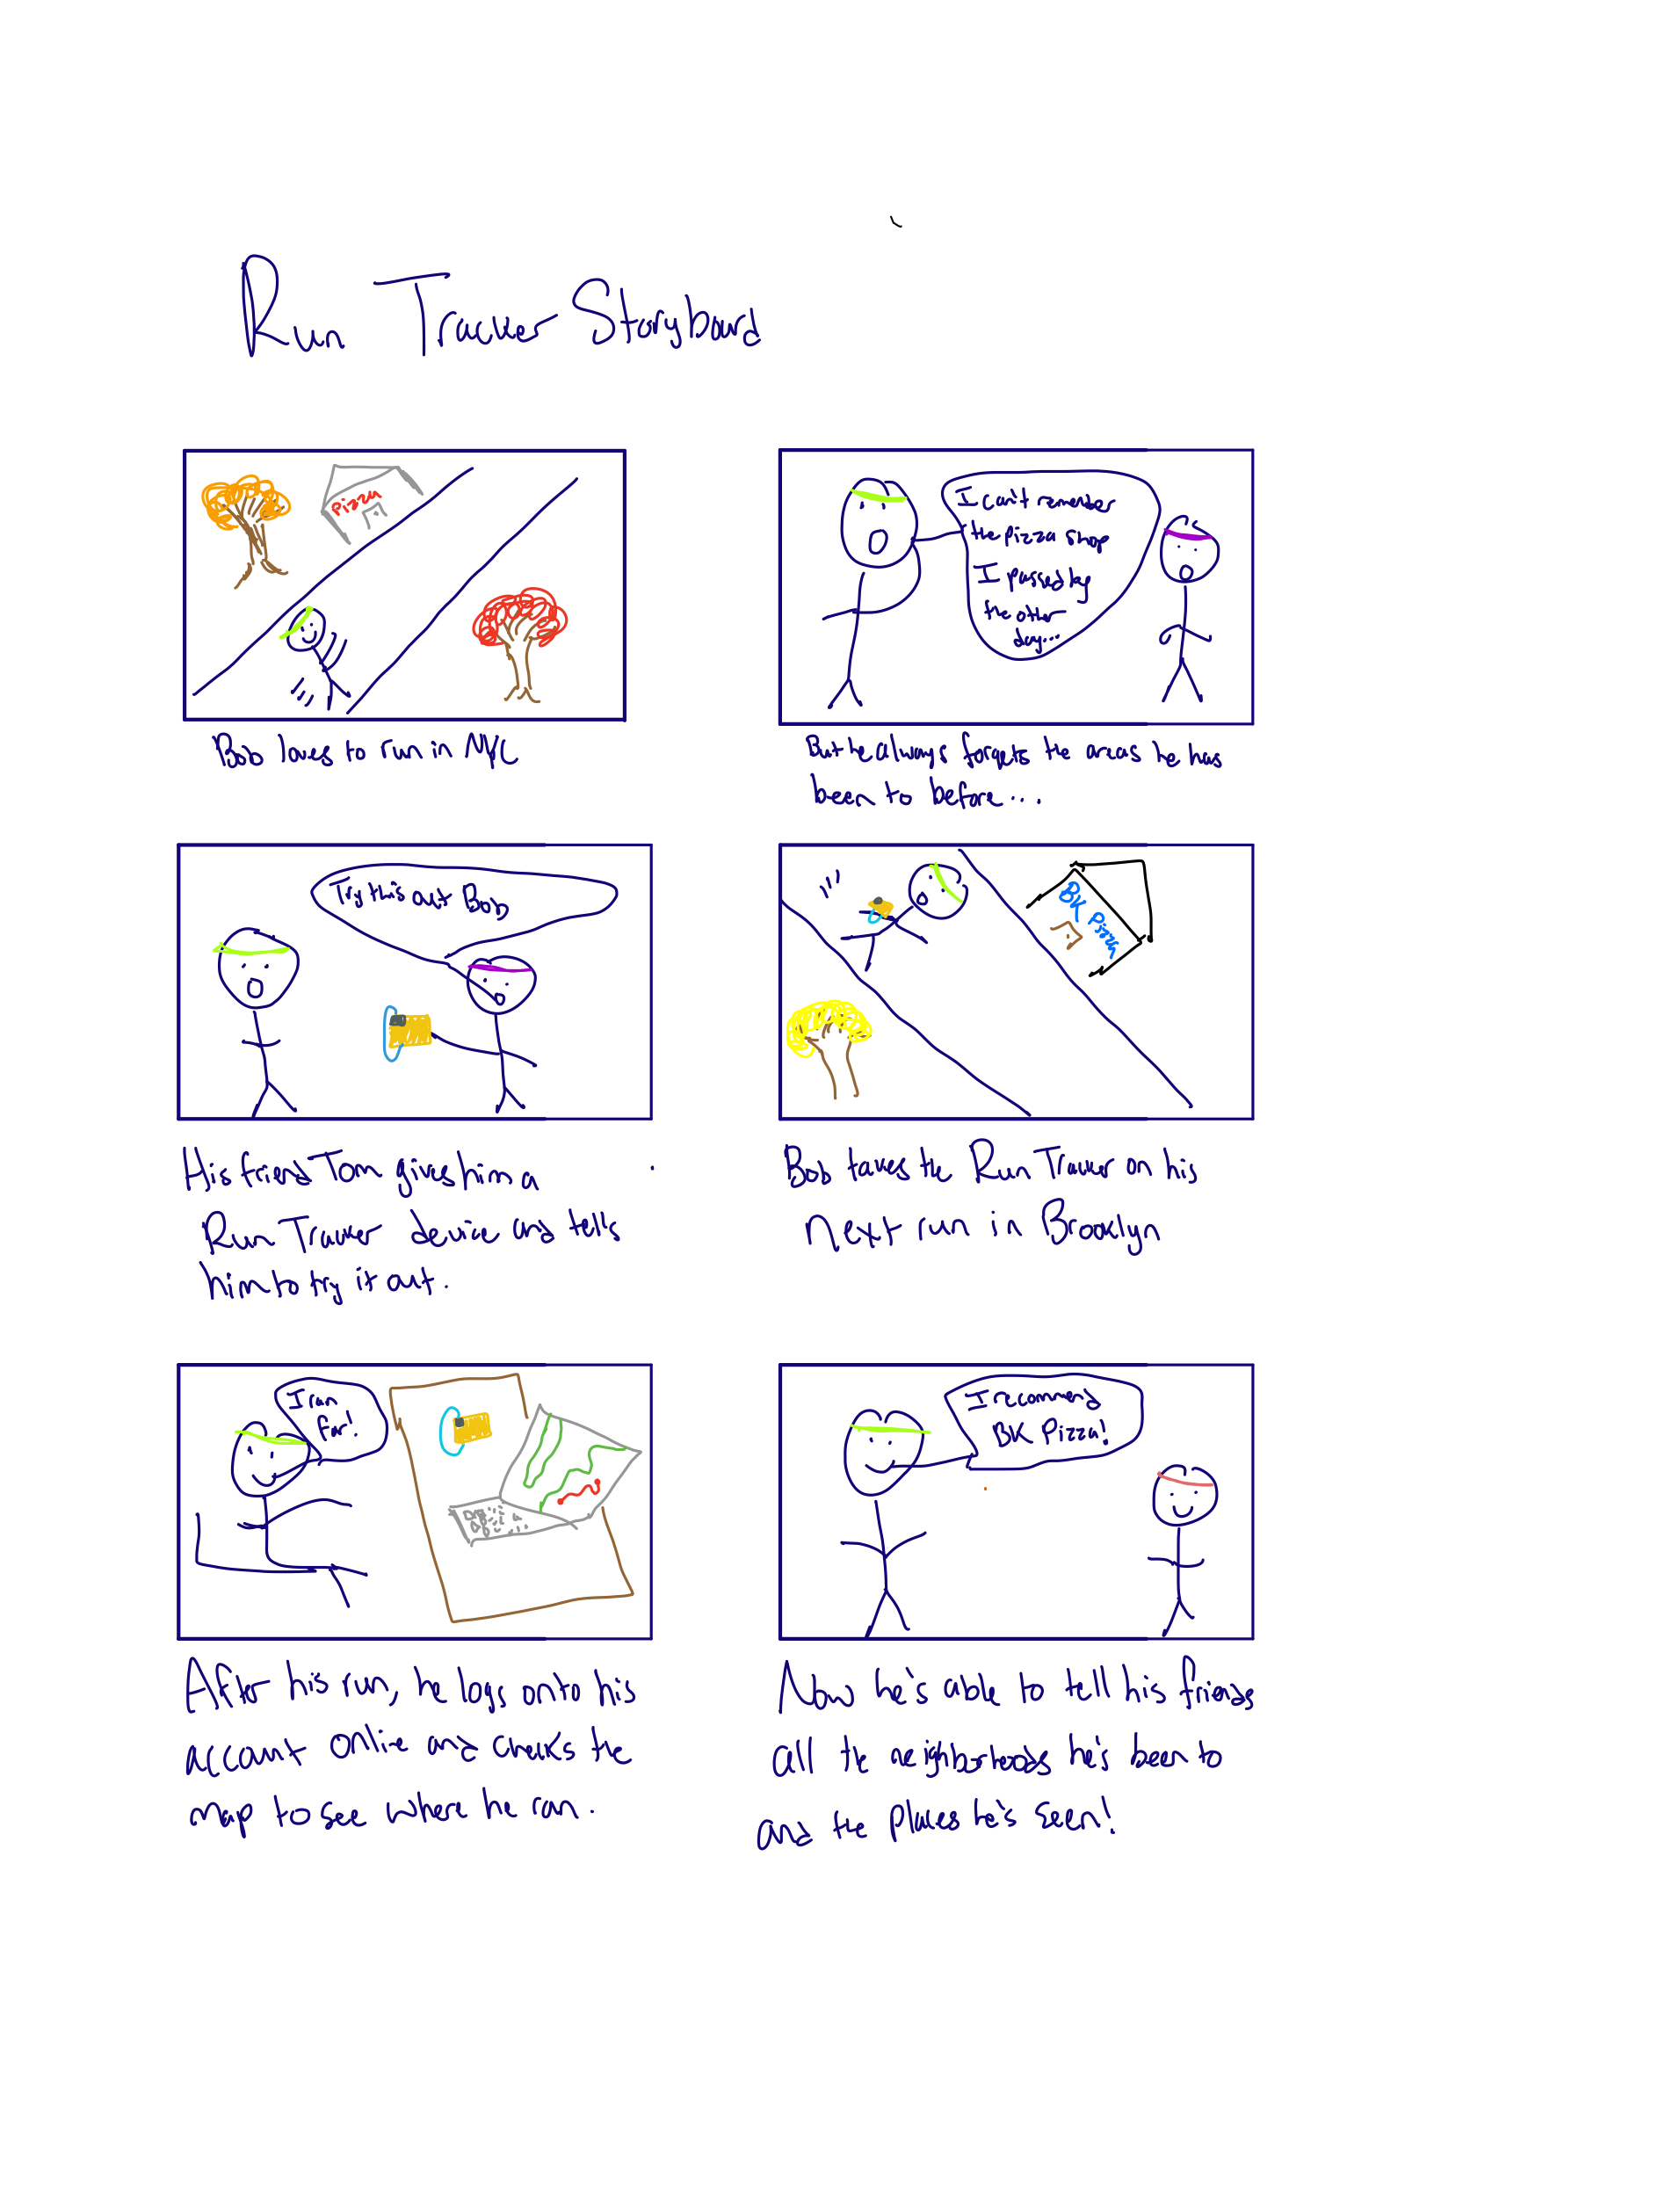 Run Tracker Storyboard
Pizza
Bob loves to run in NYC
I can't remember
the pizza shop
I passed by
the other
day...
But he always forgets the areas he has
been to before...
Try this out Bob
His friend Tom gives him a
Run Tracker device and tells
him to try it out.
BK Pizza
Bob takes the Run Tracker on his
next run in Brooklyn
I ran
far!
After his run, he logs onto his
account online and checks the
map to see where he ran.
I recommend
BK Pizza!
Now he's able to tell his friends
all the neighborhoods he's been to
and the places he's seen!